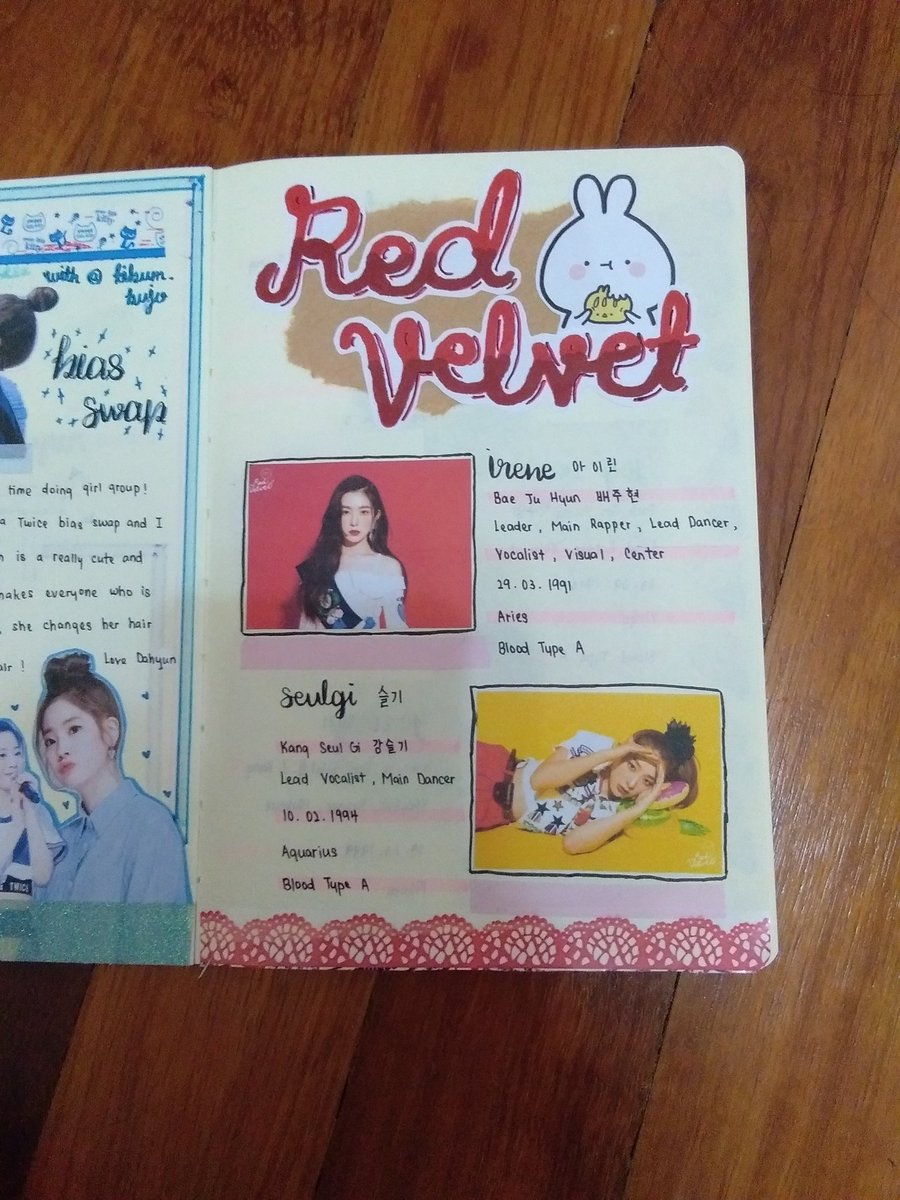 with @ 
bias
swap
time doing girl group!
a Twice bias swap and I
is a really cute and
makes everyone who is
she changes her hair
Love Dahyun
TWICE
Red
Velvet
irene 아이린
Bae Ju Hyun 배주현
Leader, Main Rapper, Lead Dancer,
Vocalist, Visual, Center
29.03.1991
Aries
Blood Type A
seulgi 슬기
Kang Seul Gi 강슬기
Lead Vocalist, Main Dancer
10.02.1994
Aquarius
Blood Type A